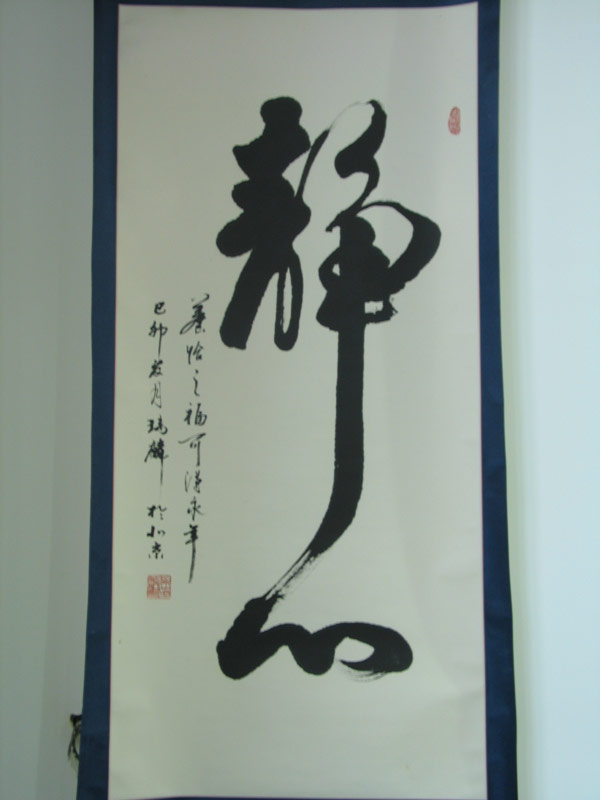 静心
养怡之福可得永年
己卯岁月瑞麟於北京